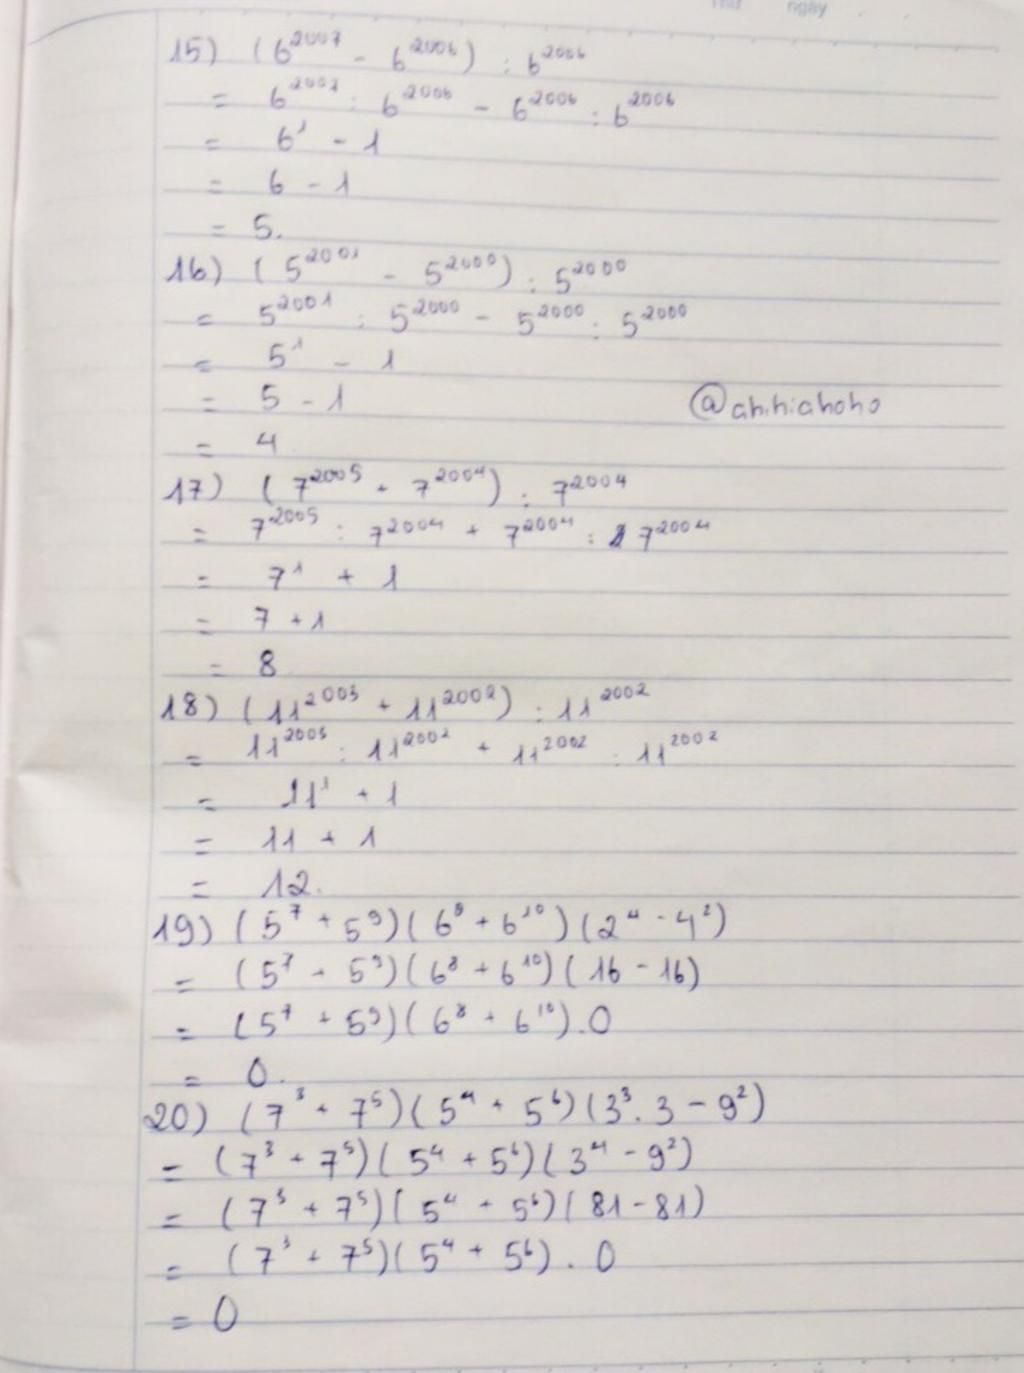 Thứ ngày
15) (6²⁰⁰⁷ - 6²⁰⁰⁶) : 6²⁰⁰⁶
= 6²⁰⁰⁷ : 6²⁰⁰⁶ - 6²⁰⁰⁶ : 6²⁰⁰⁶
= 6¹ - 1
= 6 - 1
= 5.
16) (5²⁰⁰¹ - 5²⁰⁰⁰) : 5²⁰⁰⁰
= 5²⁰⁰¹ : 5²⁰⁰⁰ - 5²⁰⁰⁰ : 5²⁰⁰⁰
= 5¹ - 1
= 5 - 1
@ahihiahoho
= 4.
17) (7²⁰⁰⁵ + 7²⁰⁰⁴) : 7²⁰⁰⁴
= 7²⁰⁰⁵ : 7²⁰⁰⁴ + 7²⁰⁰⁴ : 7²⁰⁰⁴
= 7¹ + 1
= 7 + 1
= 8
18) (11²⁰⁰³ + 11²⁰⁰²) : 11²⁰⁰²
= 11²⁰⁰³ : 11²⁰⁰² + 11²⁰⁰² : 11²⁰⁰²
= 11¹ + 1
= 11 + 1
= 12.
19) (5⁷ + 5⁹)(6⁸ + 6¹⁰)(2⁴ - 4²)
= (5⁷ + 5⁹)(6⁸ + 6¹⁰)(16 - 16)
= (5⁷ + 5⁹)(6⁸ + 6¹⁰).0
= 0.
20) (7³ + 7⁵)(5⁴ + 5⁶)(3³.3 - 9²)
= (7³ + 7⁵)(5⁴ + 5⁶)(3⁴ - 9²)
= (7³ + 7⁵)(5⁴ + 5⁶)(81 - 81)
= (7³ + 7⁵)(5⁴ + 5⁶).0
= 0